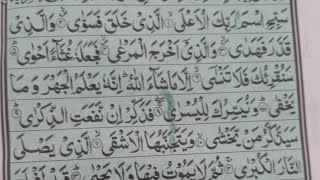 سَبِّحِ اسْمَ رَبِّكَ الْاَعْلَى ۙ الَّذِىْ خَلَقَ فَسَوّٰى ۙ وَالَّذِىْ
قَدَّرَ فَهَدٰى ۙ وَالَّذِىْٓ اَخْرَجَ الْمَرْعٰى ۙ فَجَعَلَهٗ غُثَآءً اَحْوٰى ؕ
سَنُقْرِئُكَ فَلَا تَنْسٰٓى ۙ اِلَّا مَا شَآءَ اللّٰهُ ؕ اِنَّهٗ يَعْلَمُ الْجَهْرَ وَمَا
يَخْفٰى ؕ وَنُيَسِّرُكَ لِلْيُسْرٰى ۖ فَذَكِّرْ اِنْ نَّفَعَتِ الذِّكْرٰى ؕ
سَيَذَّكَّرُ مَنْ يَّخْشٰى ۙ وَيَتَجَنَّبُهَا الْاَشْقَى ۙ الَّذِىْ يَصْلَى
النَّارَ الْكُبْرٰى ۚ ثُمَّ لَا يَمُوْتُ فِيْهَا وَلَا يَحْيٰى ؕ قَدْ اَفْلَحَ